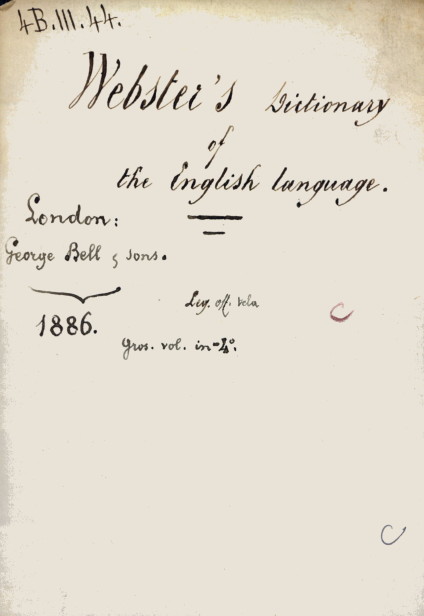 4B.III.44.
Webster's Dictionary
of
the English language.
London:
George Bell & sons.
1886.
Leg. off. vela
Gros. vol. in-4º.